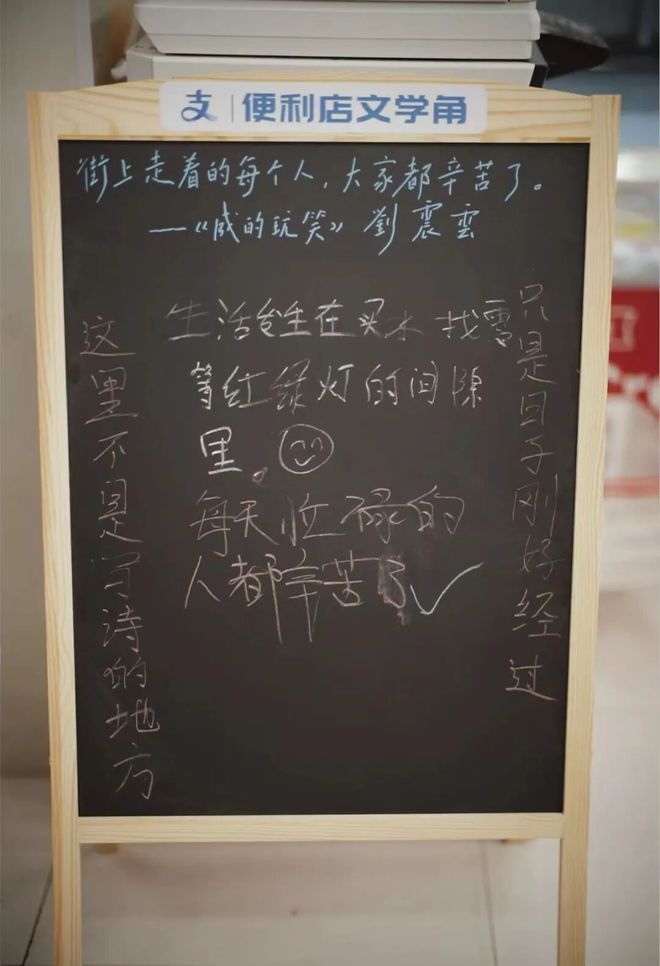 支 | 便利店文学角
街上走着的每个人，大家都辛苦了。
—《咸的玩笑》 劉震雲
这里不是写诗的地方
只是日子刚好经过
生活发生在买水 找零
等红绿灯的间隙
里。
每天忙碌的
人都辛苦了✓